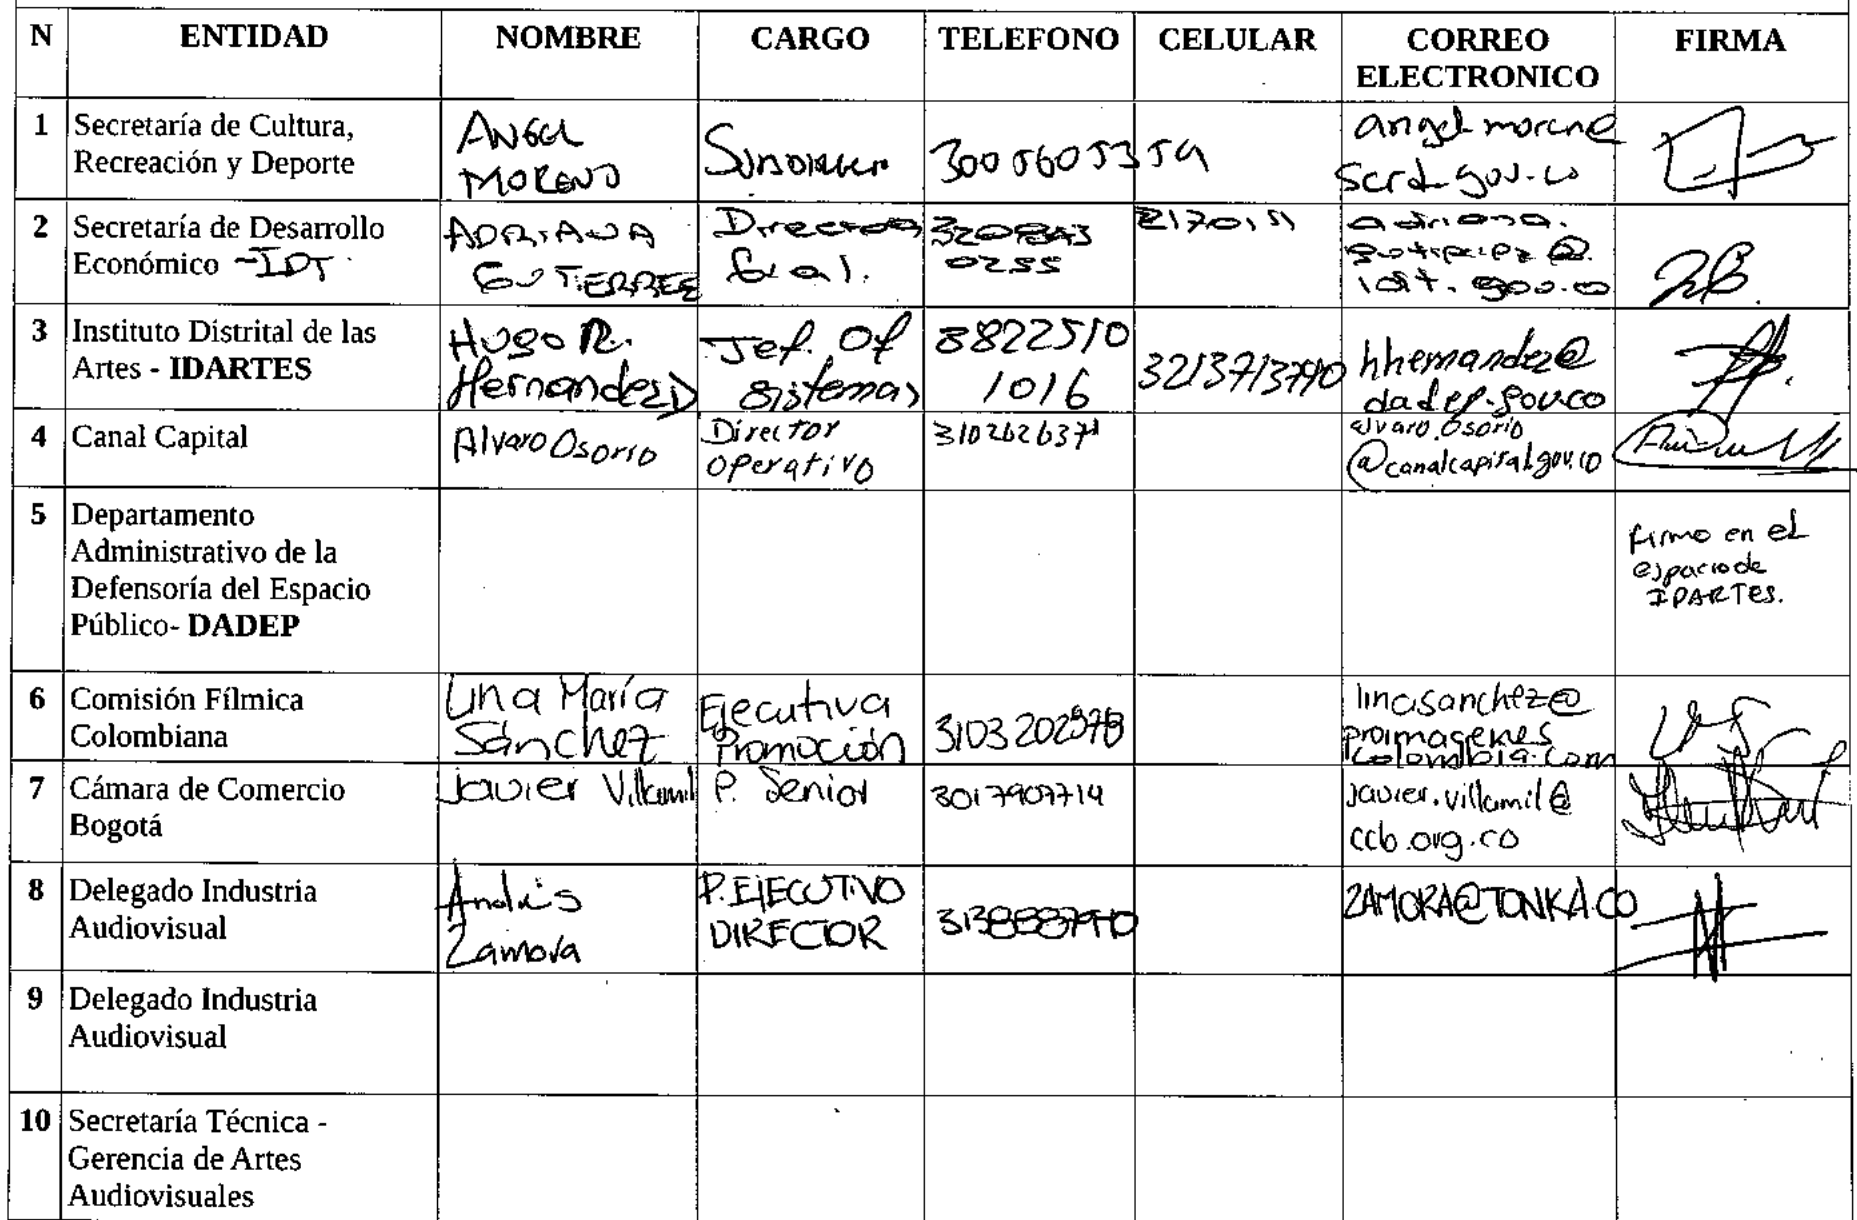 N ENTIDAD NOMBRE CARGO TELEFONO CELULAR CORREO ELECTRONICO FIRMA
1 Secretaría de Cultura, Recreación y Deporte
ANGEL
MORENO
angel.moreno
scrd.gov.co
2 Secretaría de Desarrollo
Económico -IDT
ADRIANA
GUTIERREZ
Directora
Gral.
320843
0255
2170151
adriana.
gutierrez@
idt.gov.co
3 Instituto Distrital de las
Artes - IDARTES
Hugo R.
Hernandez D
Jef. Of
sistemas
3822510
1016
3213713790
hhernandez@
dadep.gov.co
4 Canal Capital
Alvaro Osorio
Director
operativo
3102626371
alvaro.osorio
@canalcapital.gov.co
5 Departamento
Administrativo de la
Defensoría del Espacio
Público- DADEP
firmo en el
espacio de
IDARTES.
6 Comisión Fílmica
Colombiana
Lina María
Sánchez
Ejecutiva
Promoción
linasanchez@
proimagenes
colombia.com
7 Cámara de Comercio
Bogotá
Javier Villamil
P. Senior
3017907714
javier.villamil@
ccb.org.co
8 Delegado Industria
Audiovisual
Andrés
Zamora
P. EJECUTIVO
DIRECTOR
ZAMORA@TONKA.CO
9 Delegado Industria
Audiovisual
10 Secretaría Técnica -
Gerencia de Artes
Audiovisuales